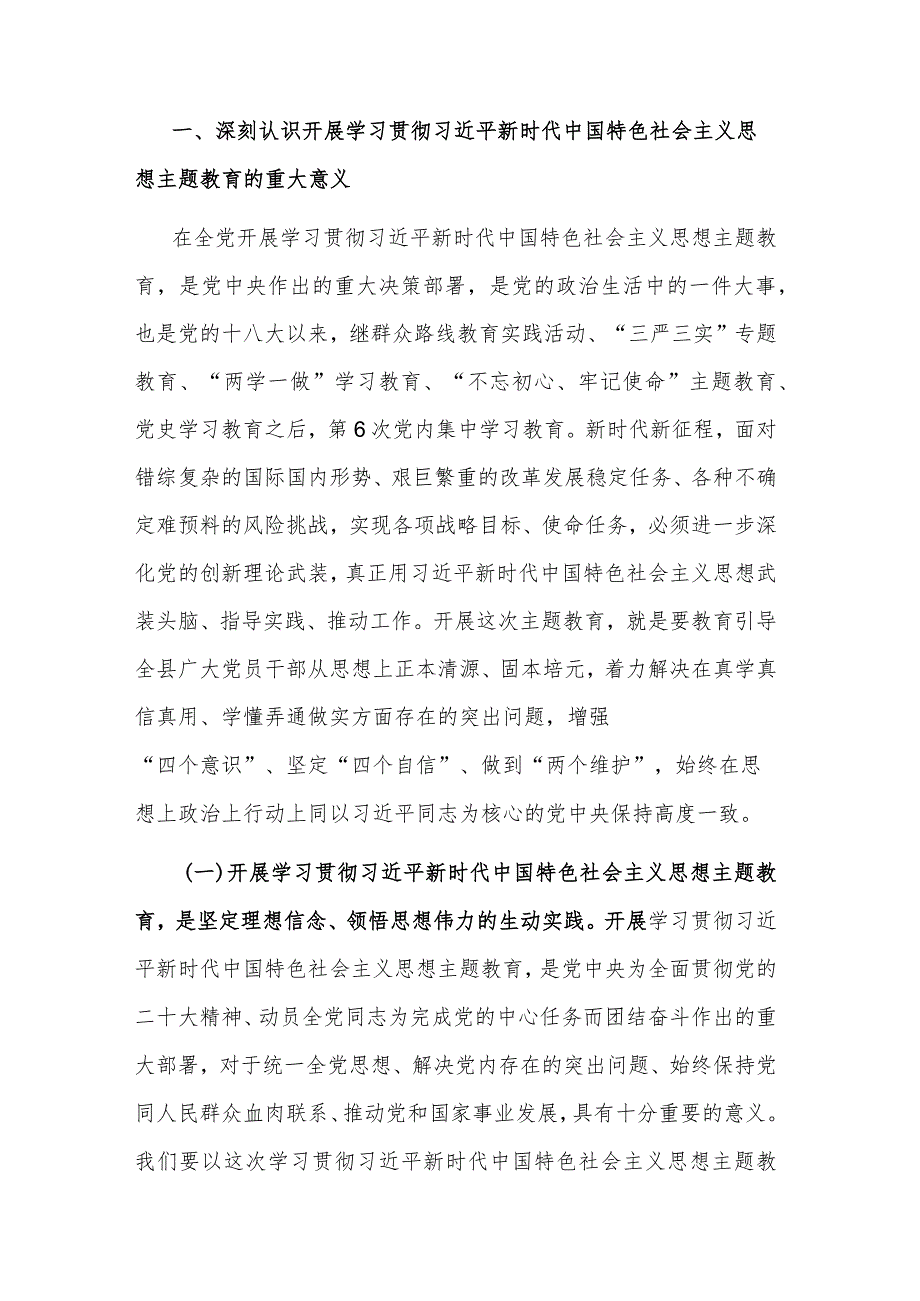 一、深刻认识开展学习贯彻习近平新时代中国特色社会主义思
想主题教育的重大意义
在全党开展学习贯彻习近平新时代中国特色社会主义思想主题教
育，是党中央作出的重大决策部署，是党的政治生活中的一件大事，
也是党的十八大以来，继群众路线教育实践活动、“三严三实”专题
教育、“两学一做”学习教育、“不忘初心、牢记使命”主题教育、
党史学习教育之后，第6次党内集中学习教育。新时代新征程，面对
错综复杂的国际国内形势、艰巨繁重的改革发展稳定任务、各种不确
定难预料的风险挑战，实现各项战略目标、使命任务，必须进一步深
化党的创新理论武装，真正用习近平新时代中国特色社会主义思想武
装头脑、指导实践、推动工作。开展这次主题教育，就是要教育引导
全县广大党员干部从思想上正本清源、固本培元，着力解决在真学真
信真用、学懂弄通做实方面存在的突出问题，增强
“四个意识”、坚定“四个自信”、做到“两个维护”，始终在思
想上政治上行动上同以习近平同志为核心的党中央保持高度一致。
(一)开展学习贯彻习近平新时代中国特色社会主义思想主题教
育，是坚定理想信念、领悟思想伟力的生动实践。开展学习贯彻习近
平新时代中国特色社会主义思想主题教育，是党中央为全面贯彻党的
二十大精神、动员全党同志为完成党的中心任务而团结奋斗作出的重
大部署，对于统一全党思想、解决党内存在的突出问题、始终保持党
同人民群众血肉联系、推动党和国家事业发展，具有十分重要的意义。
我们要以这次学习贯彻习近平新时代中国特色社会主义思想主题教